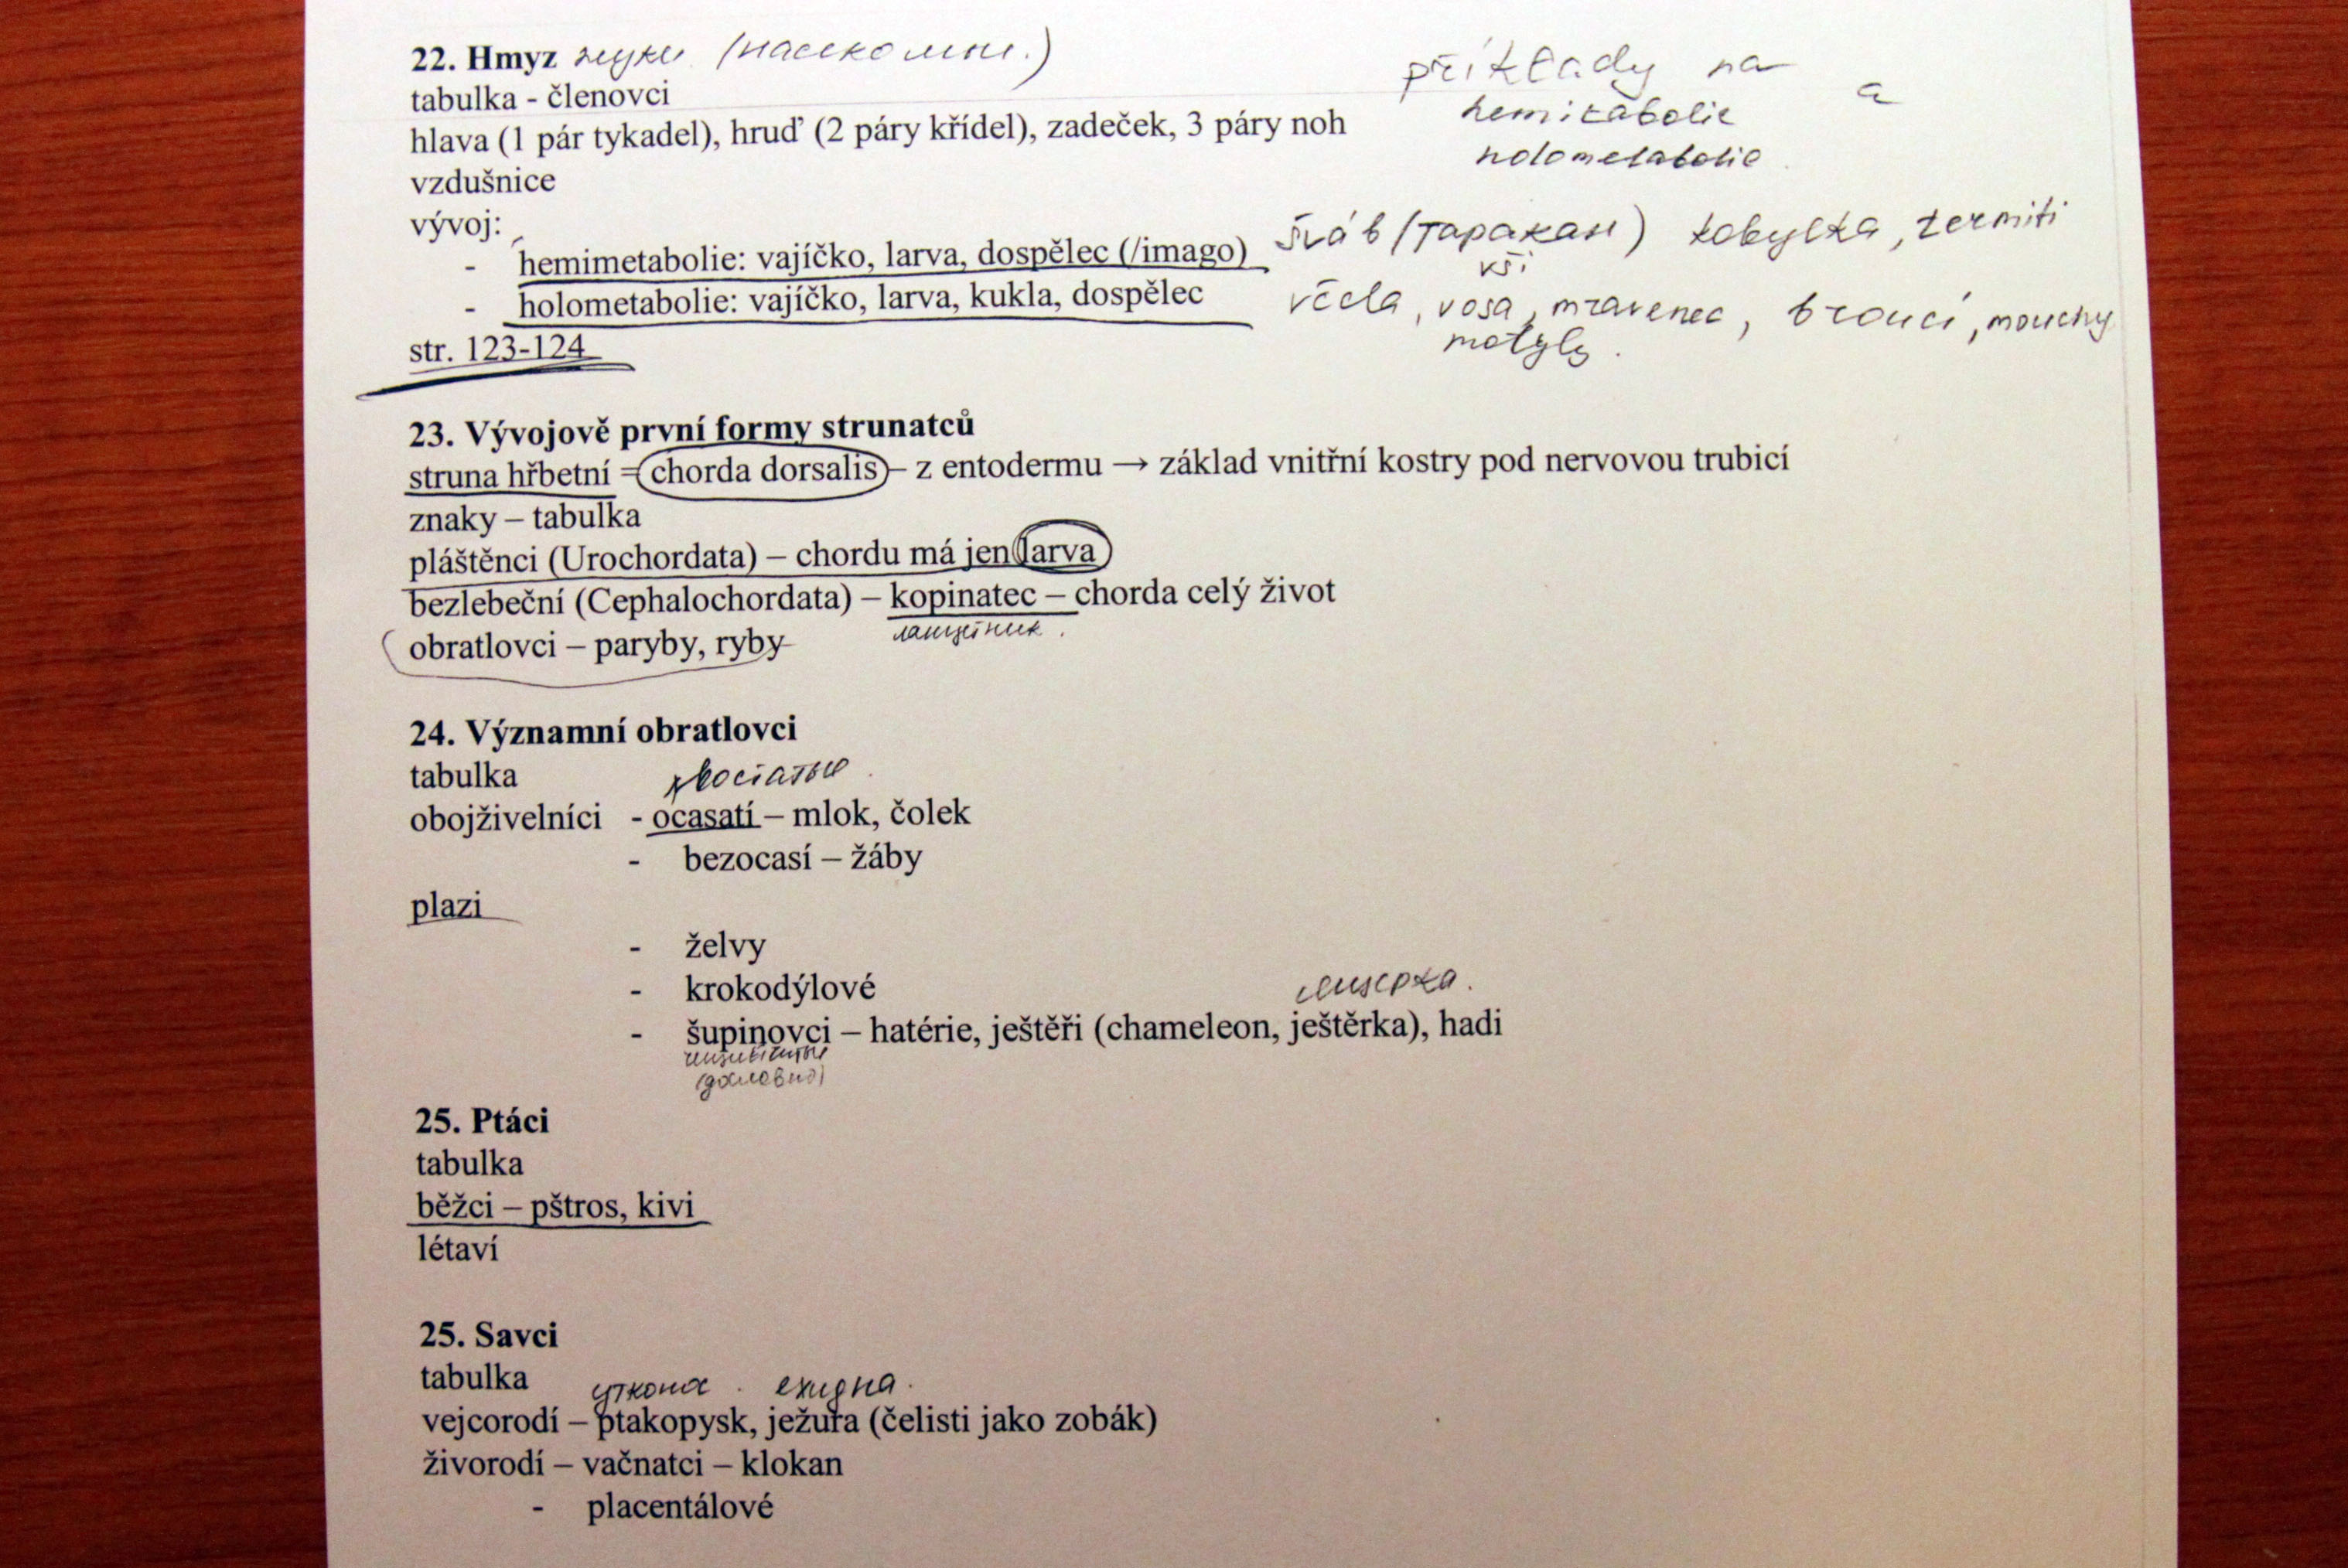 22. Hmyz жуки (насеком.)
příklady na a
tabulka - členovci
hemitabolie
hlava (1 pár tykadel), hruď (2 páry křídel), zadeček, 3 páry noh
holometabolie
vzdušnice
vývoj:
- hemimetabolie: vajíčko, larva, dospělec (/imago) šváb (таракан) kobylka, termiti
vši
- holometabolie: vajíčko, larva, kukla, dospělec včela, vosa, mravenec, brouci, mouchy
motyly.
str. 123-124
23. Vývojově první formy strunatců
struna hřbetní = chorda dorsalis – z entodermu → základ vnitřní kostry pod nervovou trubicí
znaky – tabulka
pláštěnci (Urochordata) – chordu má jen larva
bezlebeční (Cephalochordata) – kopinatec – chorda celý život
ланцетник.
obratlovci – paryby, ryby
24. Významní obratlovci
tabulka
хвостатые.
obojživelníci - ocasatí – mlok, čolek
- bezocasí – žáby
plazi
- želvy
- krokodýlové
ящерка.
- šupinovci – hatérie, ještěři (chameleon, ještěrka), hadi
25. Ptáci
tabulka
běžci – pštros, kivi
létaví
25. Savci
tabulka
утконос. ехидна.
vejcorodí – ptakopysk, ježura (čelisti jako zobák)
živorodí – vačnatci – klokan
- placentálové